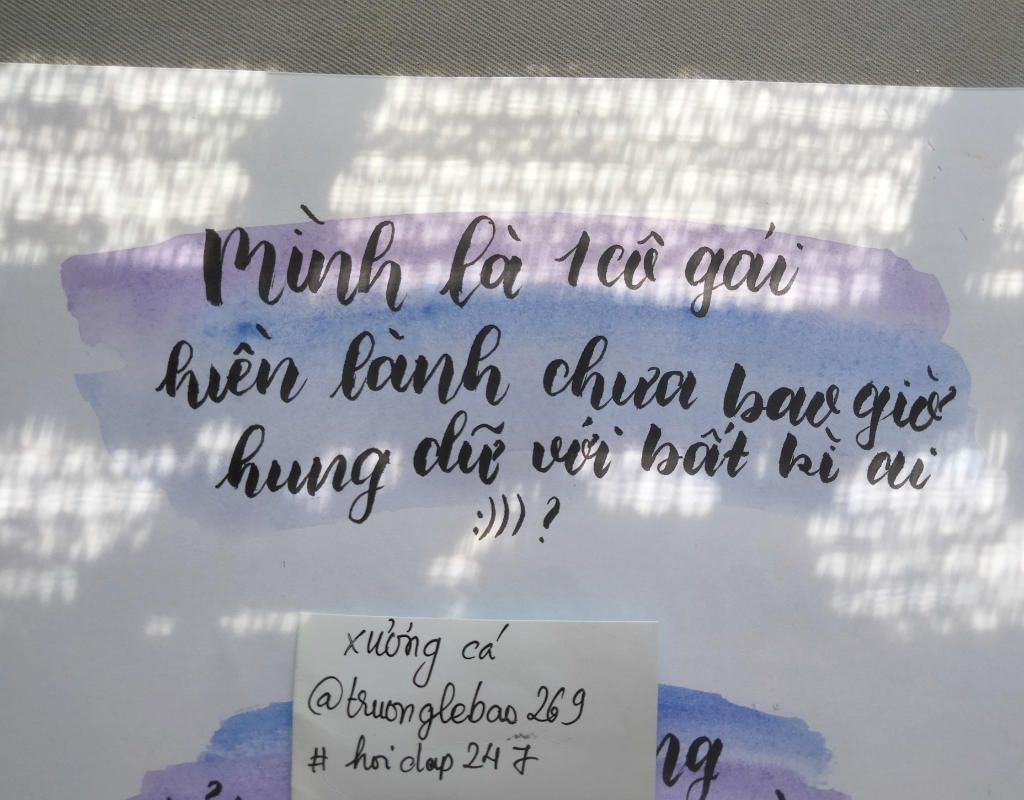 Mình là 1 cô gái
hiền lành chưa bao giờ
hung dữ với bất kì ai
:))) ?
xưởng cá
@truonglebao269
# hoidap247
ng